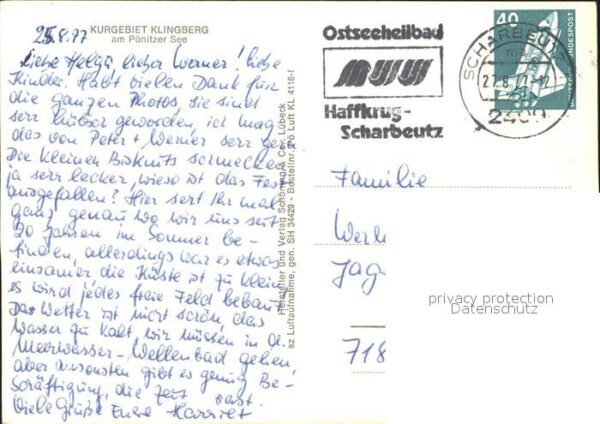 KURGEBIET KLINGBERG
am Pönitzer See
25.8.77
Liebe Helga lieber Werner! liebe
Kinder. Habt vielen Dank für
die ganzen Photos, sie sind
serr hübser geworden ich mag
das von Peter + Werner serr ger
Die kleinen Biskuits schmecken
ja serr lecker, wieso ist das Fest
ausgefallen? Hier seht Ihr mal
ganz genau wo wir uns seit
20 Jahren im Sommer be-
finden, allerdings war es etwas
einsamer die Küste ist zu klein
es wird jedes freie Feld bebaut
Das Wetter ist nicht schön das
Wasser zu kalt, wir müssen in d.
Meerwasser-Wellenbad gehen,
aber ansonsten gibt es genug Be-
schäftigung, die Zeit rast.
Viele Grüße Eure Harriet
Hersteller und Verlag Schöning & Co., Lübeck
sz Luftaufnahme, gen. SH 34429 - Bestellnr. Pö Luft KL 4118-f
Ostseeheilbad
Haffkrug-
Scharbeutz
SCHARBEUTZ
27.8.77-17
2409
40
DEUTSCHE BUNDESPOST
Familie
Wern
Jag
718
privacy protection
Datenschutz